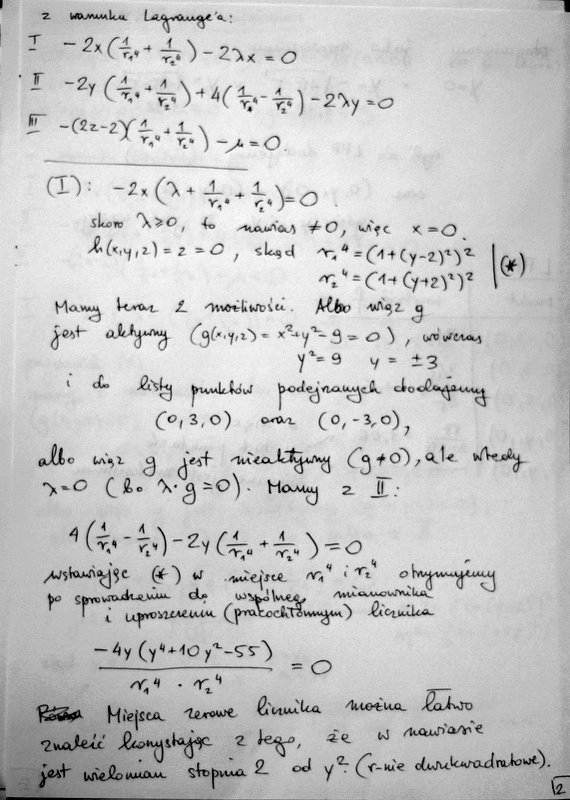 z warunku Lagrange'a:
I -2x(1/r₁⁴ + 1/r₂⁴) - 2λx = 0
II -2y(1/r₁⁴ + 1/r₂⁴) + 4(1/r₁⁴ - 1/r₂⁴) - 2λy = 0
III -(2z-2)(1/r₁⁴ + 1/r₂⁴) - μ = 0
(I): -2x(λ + 1/r₁⁴ + 1/r₂⁴) = 0
skoro λ⩾0, to nawias ≠0, więc x=0.
h(x,y,z) = z = 0, skąd r₁⁴ = (1+(y-2)²)²
r₂⁴ = (1+(y+2)²)² | (*)
Mamy teraz 2 możliwości. Albo więz g
jest aktywny (g(x,y,z) = x²+y²-9=0), wówczas
y²=9 y = ±3
i do listy punktów podejrzanych dodajemy
(0,3,0) oraz (0,-3,0),
albo więz g jest nieaktywny (g≠0), ale wtedy
λ=0 (bo λ·g=0). Mamy z II:
4(1/r₁⁴ - 1/r₂⁴) - 2y(1/r₁⁴ + 1/r₂⁴) = 0
wstawiając (*) w miejsce r₁⁴ i r₂⁴ otrzymujemy
po sprowadzeniu do wspólnego mianownika
i uproszczeniu (pracochłonnym) licznika
-4y(y⁴+10y²-55) / r₁⁴ · r₂⁴ = 0
Miejsca zerowe licznika można łatwo
znaleźć korzystając z tego, że w nawiasie
jest wielomian stopnia 2 od y². (r-nie dwukwadratowe).
2